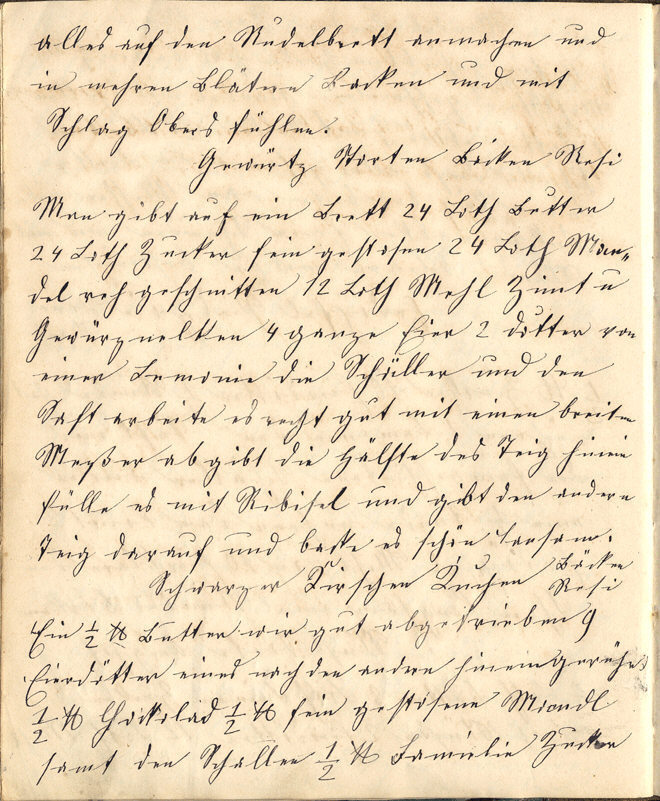 alles auf den Nudelbrett anmachen und
in mehren Blätern backen und mit
Schlag Obers fühlen.
Gewürtz Torten Bäken Resi
Man gibt auf ein Brett 24 Loth Butter
24 Loth Zucker fein gestosen 24 Loth Man„
del roh geschnitten 12 Loth Mehl Zimt u
Gewürznelken 4 ganze Eier 2 dotter von
einer Lemonie die Schäller und den
Saft arbeite es recht gut mit einen breiten
Meßer ab gibt die Hälfte des Teig hinein
fülle es mit Ribisel und gibt den andern
Teig darauf und backe es schön lansam.
Schwarzer Kirschen Kuchen Bäcken
Resi
Ein 1/2 ℔ Butter wir gut abgetrieben 9
Eierdötter eines nach den andern hinein gerührt
1/2 ℔ Chokolad 1/2 ℔ fein gestosene Mandl
samt den Schallen 1/2 ℔ Famielie Zucker